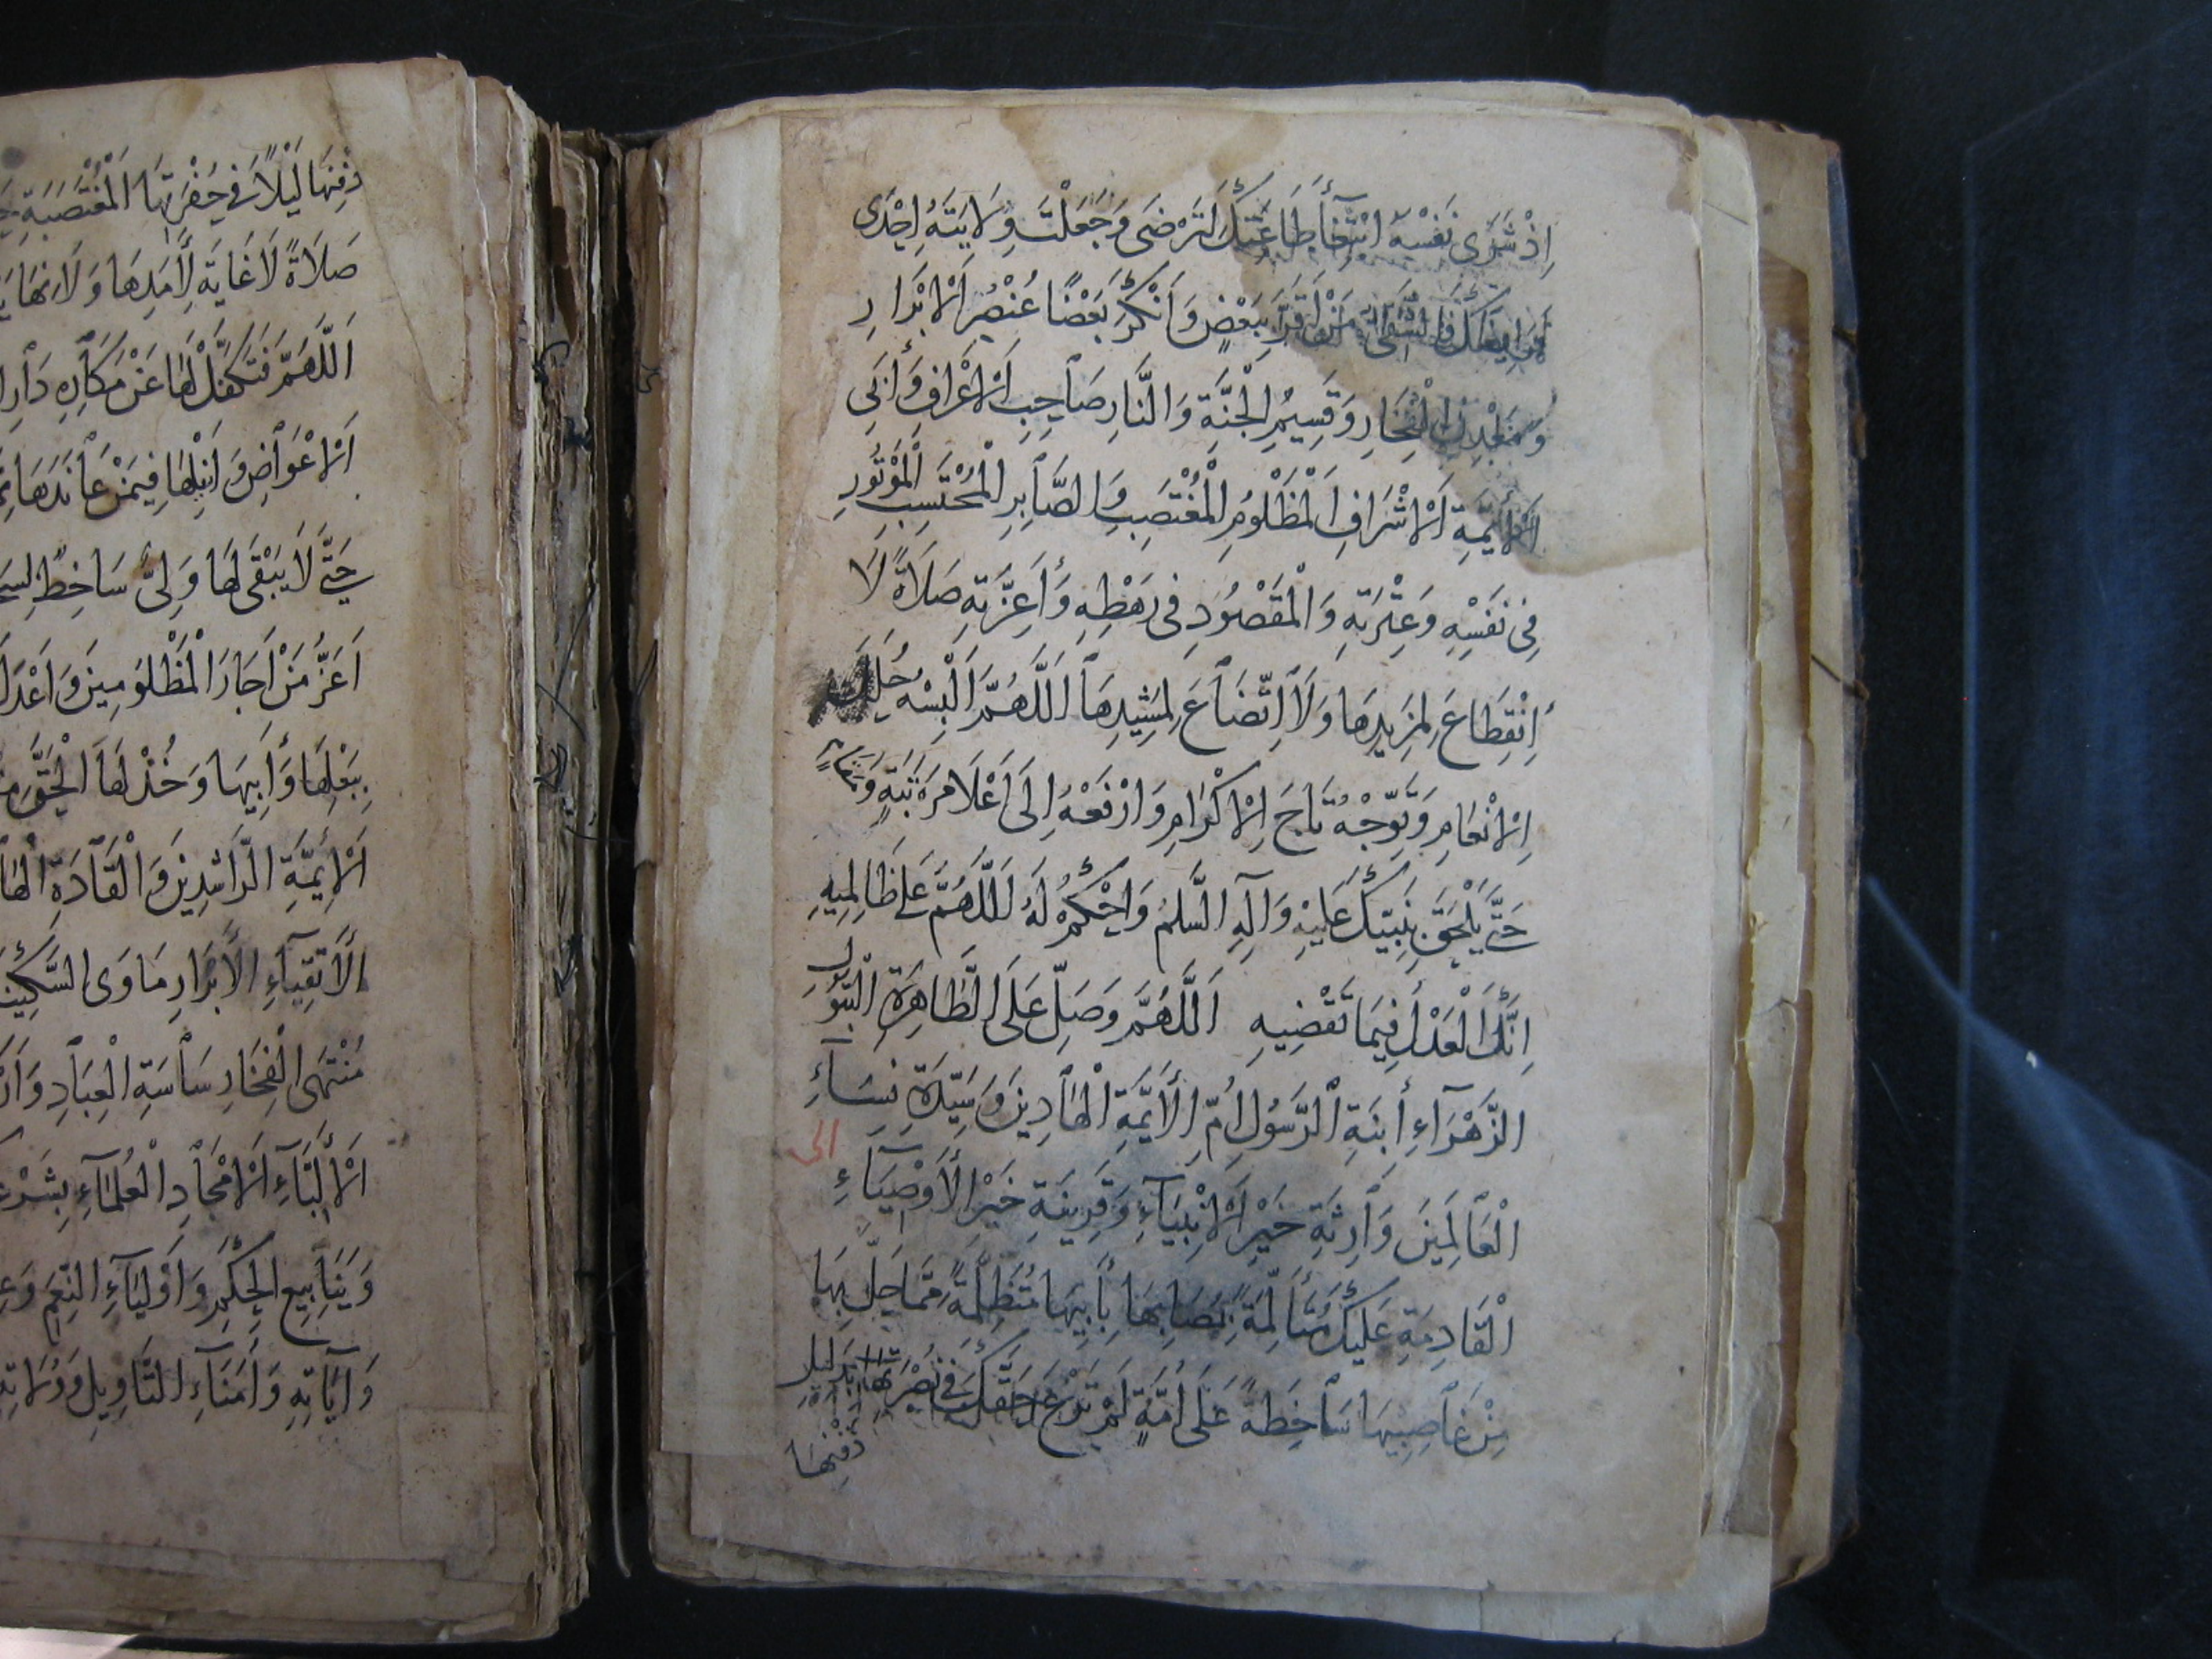 اِذْ شَرَى نَفْسَهُ ابْتِغَآءَ طَاعَتِكَ لِتَرْضَى وَجَعَلْتَ وِلَايَتَهُ اِحْدَى
فَرَايِضِكَ بِبَعْضٍ وَاَنْكَرَ بَعْضًا عُنْصُرِ اَلْاَبْرَارِ
وَمَعْدِنِ الْفَخَارِ وَقَسِيْمِ الْجَنَّةِ وَالنَّارِ صَاحِبِ اَلْاَعْرَافِ وَأَبِي
اَلْاَيِمَّةِ اَلْاَشْرَافِ اَلْمَظْلُوْمِ الْمُغْتَصَبِ وَالصَّابِرِ الْمُحْتَسِبِ الْمَوْتُورِ
فِي نَفْسِهِ وَعِتْرَتِهِ وَالْمَقْصُوْدِ فِي رَهْطِهِ وَأَعِزَّتِهِ صَلَاةً لَا
اِنْقِطَاعَ لِمَزِيدِهَا وَلَا اتِّضَاعَ لِمَشِيْدِهَا اَللَّهُمَّ اَلْبِسْهُ حُلَلَ
اِلْاِنْعَامِ وَتَوِّجْهُ تَاجَ اِلْاِكْرَامِ وَارْفَعْهُ اِلَى اَعْلَا مَرْتَبَةٍ وَمَقَامٍ
حَتَّى يَلْحَقَ بِنَبِيِّكَ عَلَيْهِ وَآلِهِ السَّلَمُ وَاحْكُمْ لَهُ اَللَّهُمَّ عَلَى ظَالِمِيْهِ
اِنَّكَ الْعَدْلُ فِيمَا تَقْضِيهِ اَللَّهُمَّ وَصَلِّ عَلَى الطَّاهِرَةِ الْبَتُوْلِ
الزَّهْرَآءِ اُبْنَةِ الرَّسُوْلِ اُمِّ الْأَيِمَّةِ الْهَادِينَ وَسَيِّدَةِ نِسَآءِ
الى
الْعَالَمِيْنَ وَارِثَةِ خَيْرِ اَلْاَنْبِيَآءِ وَقَرِينَةِ خَيْرِ الْأَوْصِيَآءِ
الْقَادِمَةِ عَلَيْكَ مُتَأَلِّمَةً بِمُصَابِهَا بِأَبِيهَا مُتَظَلِّمَةً مِمَّا حَلَّ بِهَا
مِنْ غَاصِبِيْهَا سَاخِطَةً عَلَى أُمَّةٍ لَمْ تَرْعَ حَقَّكَ فِي نُصْرَتِهَا بِدَلِيْلِ
دَفْنِهَا
دَفْنِهَا لَيْلًا فِي حُفْرَتِهَا الْمُغْتَصَبَةِ
صَلَاةً لَا غَايَةَ لِأَمَدِهَا وَلَا نِهَايَةَ
اَللَّهُمَّ فَتَكَفَّلْ لَهَا عَنْ مَكَارِهِ دَارِ
اَلْاَعْوَاضِ وَاَنِلْهَا فِيمَنْ عَانَدَهَا
حَتَّى لَا يَبْقَى لَهَا وَلِيٌّ سَاخِطٌ
اَعَزُّ مَنْ اَجَارَ الْمَظْلُوْمِينَ وَاَعْدَلُ
بِبَعْلِهَا وَأَبِيهَا وَخُذْ لَهَا الْحَقَّ
اَلْاَيِمَّةِ الرَّاشِدِيْنَ وَالْقَادَةِ
الْأَتْقِيَآءِ الْأَبْرَارِ مَأوَى السَّكِيْنَةِ
مُنْتَهَى الْفَخَارِ سَاسَةِ الْعِبَادِ
اَلْاَلِبَّآءِ اَلْاَمْجَادِ الْعُلَمَآءِ
وَيَنَابِيعِ الْحِكَمِ وَاَوْلِيَآءِ النِّعَمِ
وَآيَاتِهِ وَأُمَنَآءِ التَّاوِيلِ وَوُلَاتِهِ